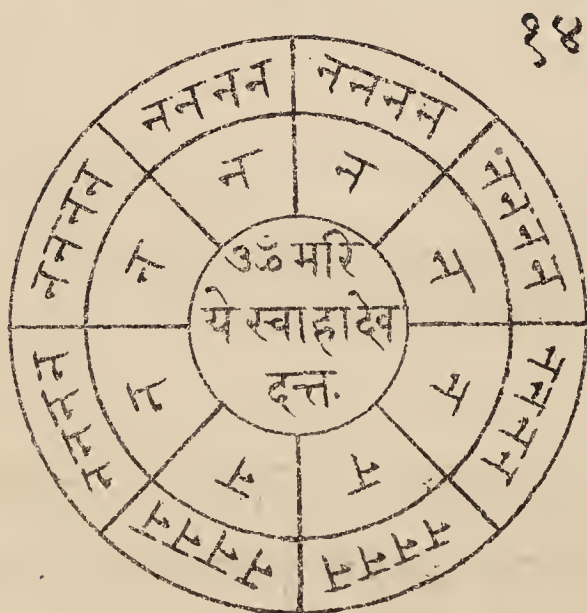 १४
न न न न
न न न न
न न न न
न न न न
न न न न
न न न न
न न न न
न न न न
न
न
न
न
न
न
न
न
ॐ मरि
ये स्वाहा देव
दत्त.